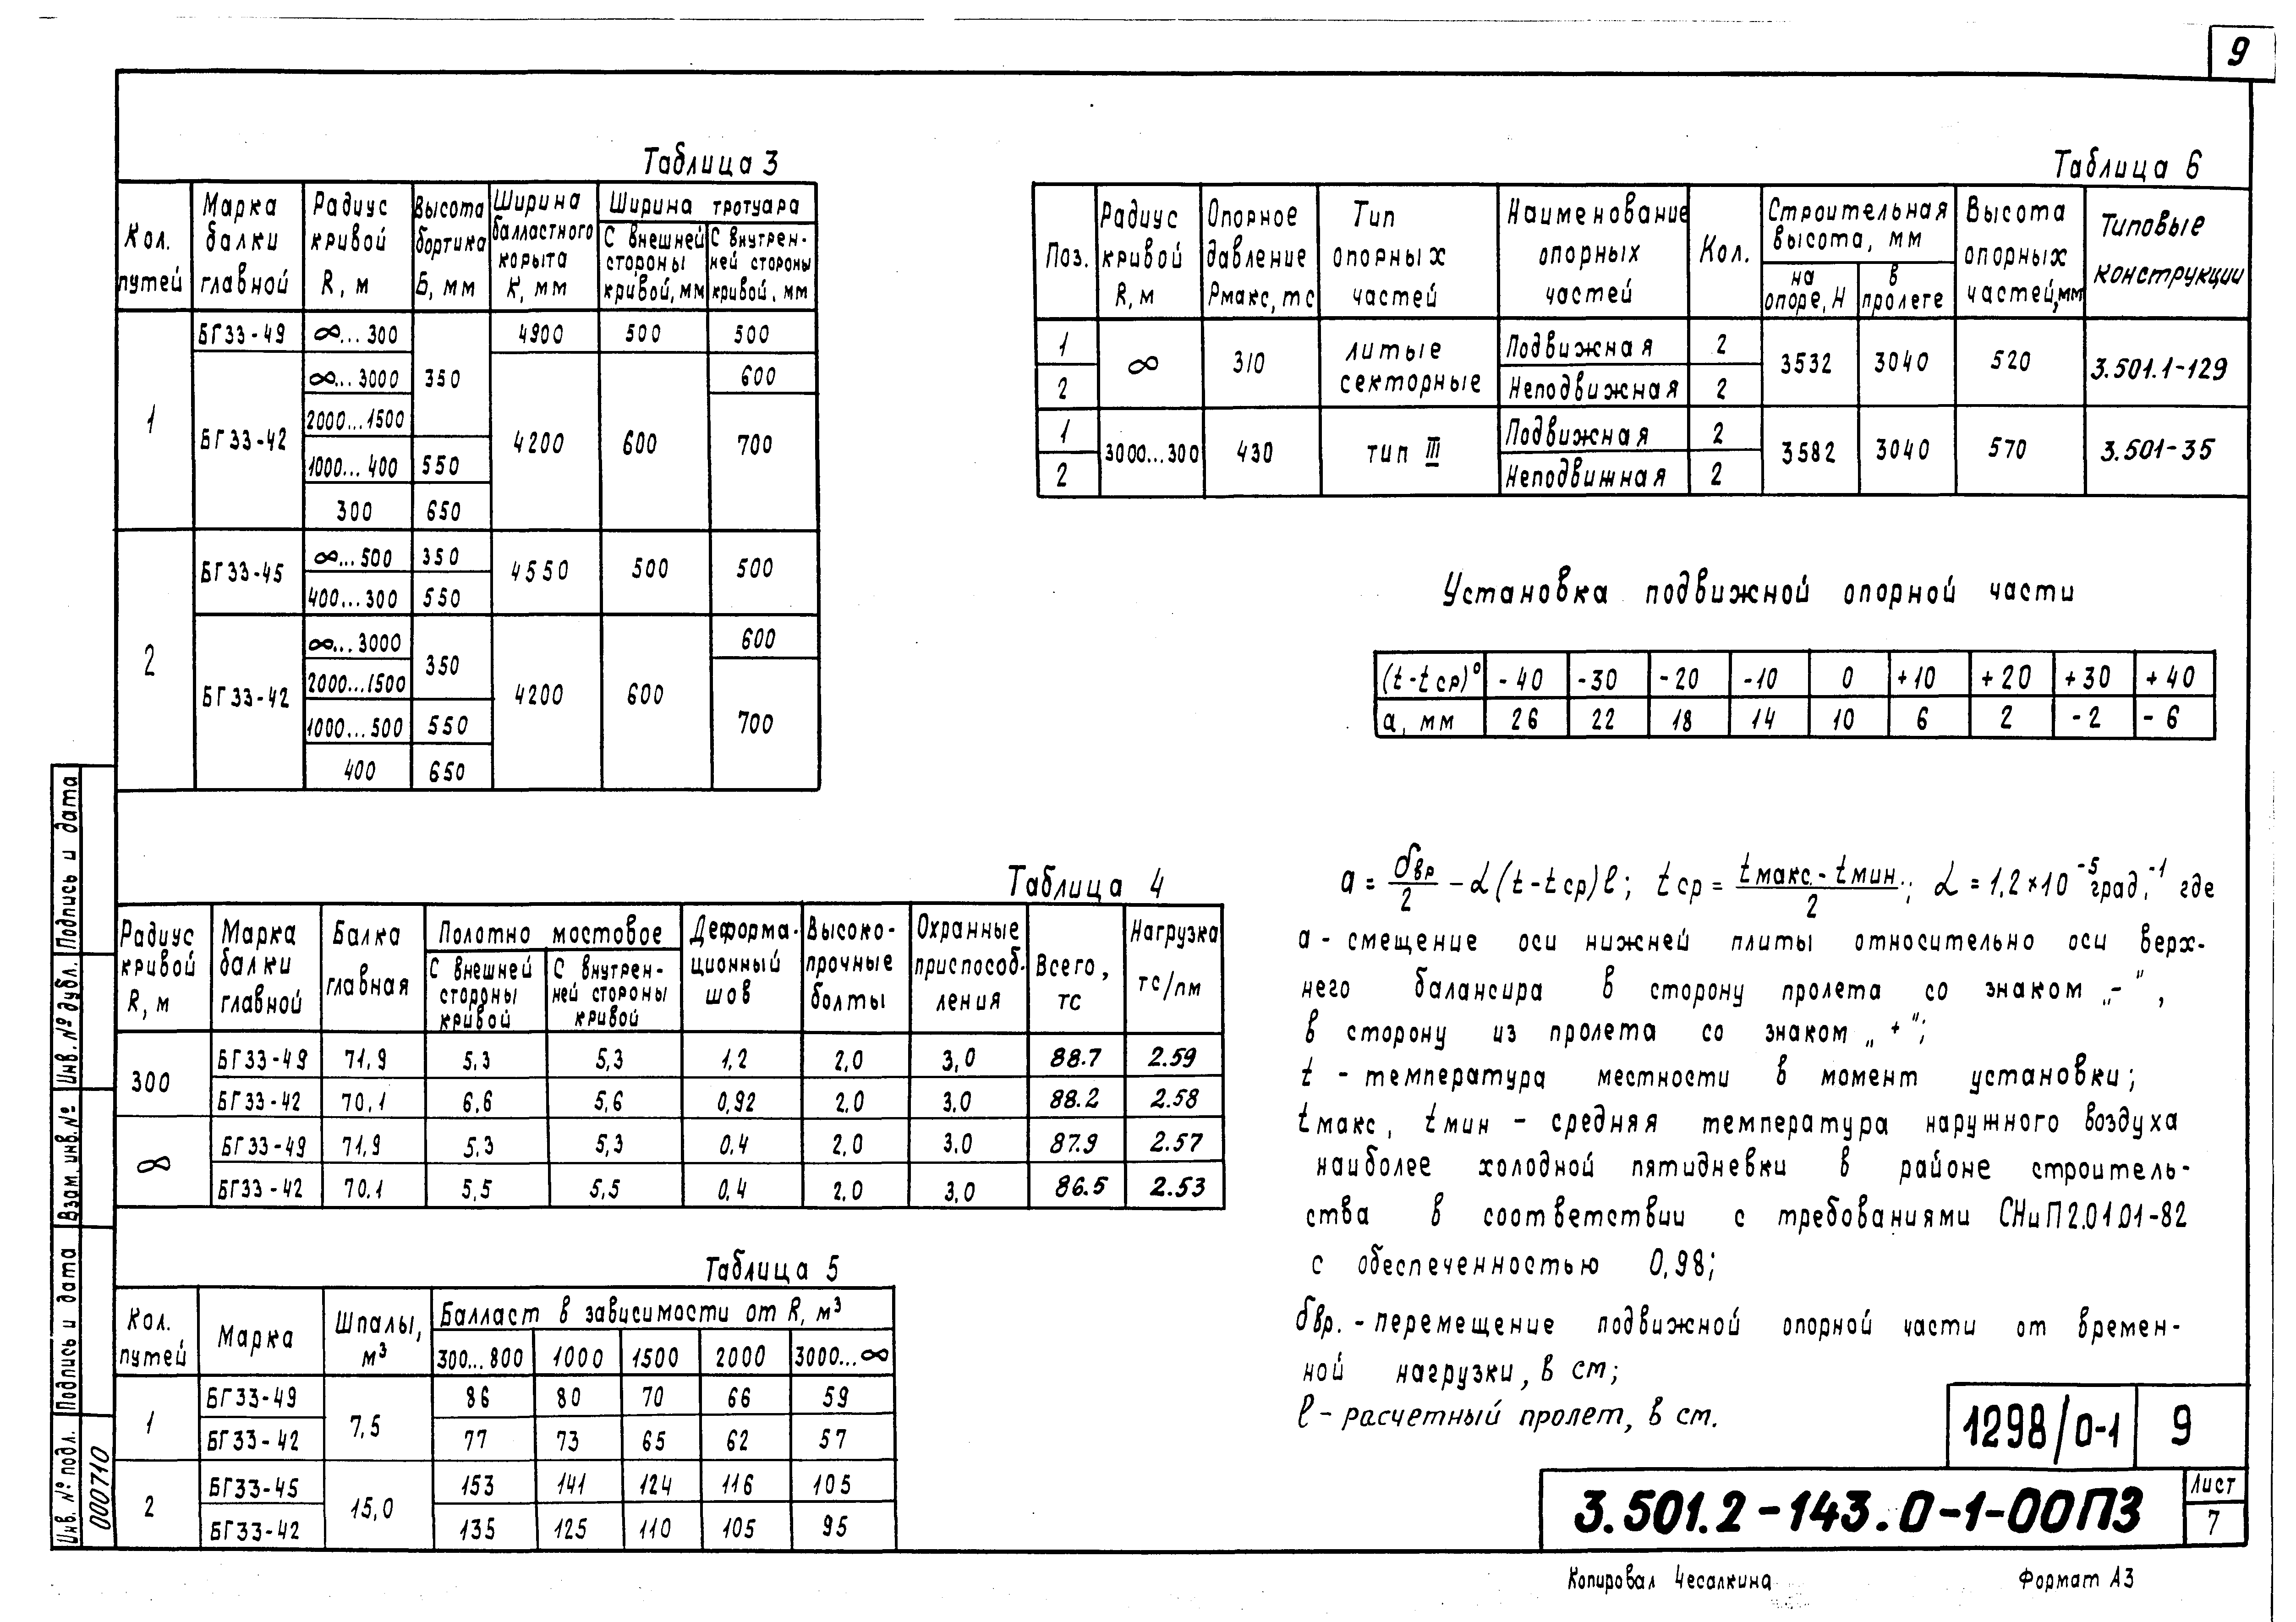 9
Таблица 3
Кол. путей | Марка балки главной | Радиус кривой R, м | Высота бортика Б, мм | Ширина балластного корыта К, мм | Ширина тротуара
С внешней стороны кривой, мм | С внутренней стороны кривой, мм
1 | БГ33-49 | ∞...300 | 350 | 4900 | 500 | 500
БГ33-42 | ∞...3000 | 4200 | 600 | 600
2000...1500 | 700
1000...400 | 550
300 | 650
2 | БГ33-45 | ∞...500 | 350 | 4550 | 500 | 500
400...300 | 550
БГ33-42 | ∞...3000 | 350 | 4200 | 600 | 600
2000...1500 | 700
1000...500 | 550
400 | 650
Таблица 4
Радиус кривой R, м | Марка балки главной | Балка главная | Полотно мостовое | Деформа-ционный шов | Высоко-прочные болты | Охранные приспособ-ления | Всего, тс | Нагрузка тс/пм
С внешней стороны кривой | С внутрен-ней стороны кривой
300 | БГ33-49 | 71,9 | 5,3 | 5,3 | 1,2 | 2,0 | 3,0 | 88.7 | 2.59
БГ33-42 | 70,1 | 6,6 | 5,6 | 0,92 | 2,0 | 3.0 | 88.2 | 2.58
∞ | БГ33-49 | 71,9 | 5,3 | 5,3 | 0,4 | 2,0 | 3.0 | 87.9 | 2.57
БГ33-42 | 70.1 | 5,5 | 5,5 | 0,4 | 2.0 | 3,0 | 86.5 | 2.53
Таблица 5
Кол. путей | Марка | Шпалы, м³ | Балласт в зависимости от R, м³
300...800 | 1000 | 1500 | 2000 | 3000...∞
1 | БГ33-49 | 7,5 | 86 | 80 | 70 | 66 | 59
БГ33-42 | 77 | 73 | 65 | 62 | 57
2 | БГ33-45 | 15,0 | 153 | 141 | 124 | 116 | 105
БГ33-42 | 135 | 125 | 110 | 105 | 95
Таблица 6
Поз. | Радиус кривой R, м | Опорное давление Рмакс, тс | Тип опорных частей | Наименование опорных частей | Кол. | Строительная высота, мм | Высота опорных частей, мм | Типовые конструкции
на опоре, Н | в пролете
1 | ∞ | 310 | литые секторные | Подвижная | 2 | 3532 | 3040 | 520 | 3.501.1-129
2 | Неподвижная | 2
1 | 3000...300 | 430 | тип III | Подвижная | 2 | 3582 | 3040 | 570 | 3.501-35
2 | Неподвижная | 2
Установка подвижной опорной части
(t-tср)° | -40 | -30 | -20 | -10 | 0 | +10 | +20 | +30 | +40
а, мм | 26 | 22 | 18 | 14 | 10 | 6 | 2 | -2 | -6
а = δвр/2 - α(t-tср)ℓ; tср = (tмакс. - tмин.)/2; α = 1,2×10⁻⁵ град.⁻¹, где
а - смещение оси нижней плиты относительно оси верх-
него балансира в сторону пролета со знаком „-",
в сторону из пролета со знаком „+";
t - температура местности в момент установки;
tмакс, tмин - средняя температура наружного воздуха
наиболее холодной пятидневки в районе строитель-
ства в соответствии с требованиями СНиП2.01.01-82
с обеспеченностью 0,98;
δвр. - перемещение подвижной опорной части от времен-
ной нагрузки, в см;
ℓ - расчетный пролет, в см.
1298/0-1 | 9
3.501.2-143.0-1-00ПЗ
Лист
7
Копировал Чесалкина
Формат А3
Инв. № подл. | Подпись и дата | Взам. инв. № | Инв. № дубл. | Подпись и дата
000710